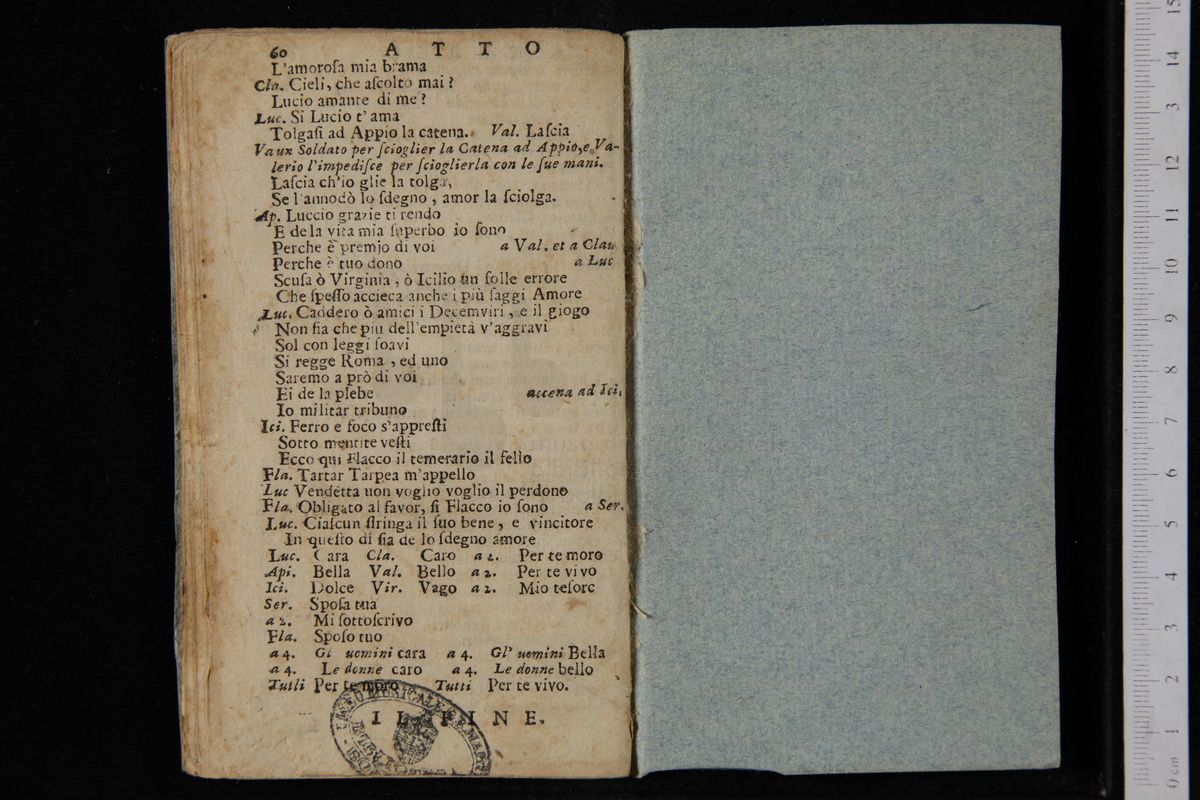 60 ATTO
L'amoroſa mia brama
Cla. Cieli, che aſcolto mai?
Lucio amante di me?
Luc. Si Lucio t'ama
Tolgaſi ad Appio la catena. Val. Laſcia
Va un Soldato per ſcioglier la Catena ad Appio, e Va-
lerio l'impediſce per ſcioglierla con le ſue mani.
Laſcia ch'io glie la tolga,
Se l'annodò lo ſdegno, amor la ſciolga.
Ap. Luccio grazie ti rendo
E de la vita mia ſuperbo io ſono
Perche è premjo di voi a Val. et a Clau
Perche è tuo dono a Luc
Scuſa ò Virginia, ò Icilio un folle errore
Che ſpeſſo accieca anche i più ſaggi Amore
Luc. Caddero ò amici i Decemviri, e il giogo
Non fia che piu dell'empietà v'aggravi
Sol con leggi ſoavi
Si regge Roma, ed uno
Saremo a prò di voi
Ei de la plebe accena ad Ici,
Io militar tribuno
Ici. Ferro e foco s'appreſti
Sotto mentite veſti
Ecco qui Flacco il temerario il fello
Fla. Tartar Tarpea m'appello
Luc Vendetta non voglio voglio il perdono
Fla. Obligato al favor, ſi Flacco io ſono a Ser.
Luc. Ciaſcun ſtringa il ſuo bene, e vincitore
In queſto di ſia de lo ſdegno amore
Luc. Cara Cla. Caro a 2. Per te moro
Api. Bella Val. Bello a 2. Per te vivo
Ici. Dolce Vir. Vago a 2. Mio teſorc
Ser. Spoſa tua
a 2. Mi ſottoſcrivo
Fla. Spoſo tuo
a 4. Gl uomini cara a 4. Gl' uomini Bella
a 4. Le donne caro a 4. Le donne bello
Tutli Per te moro Tutti Per te vivo.
IL FINE.
0 cm 1 2 3 4 5 6 7 8 9 10 11 12 3 14 15